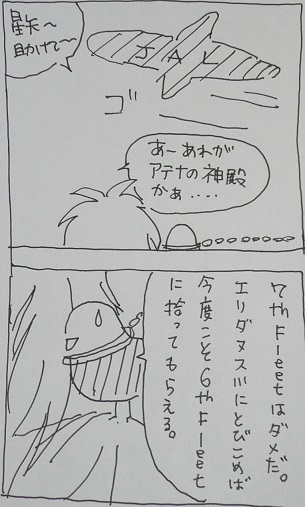 星矢～
助けて～
JAL
ゴ
あーあれが
アテナの神殿
かぁ....
7th Fleetはダメだ。
エリダヌス川にとびこめば
今度こそ6th Fleet
に拾ってもらえる。